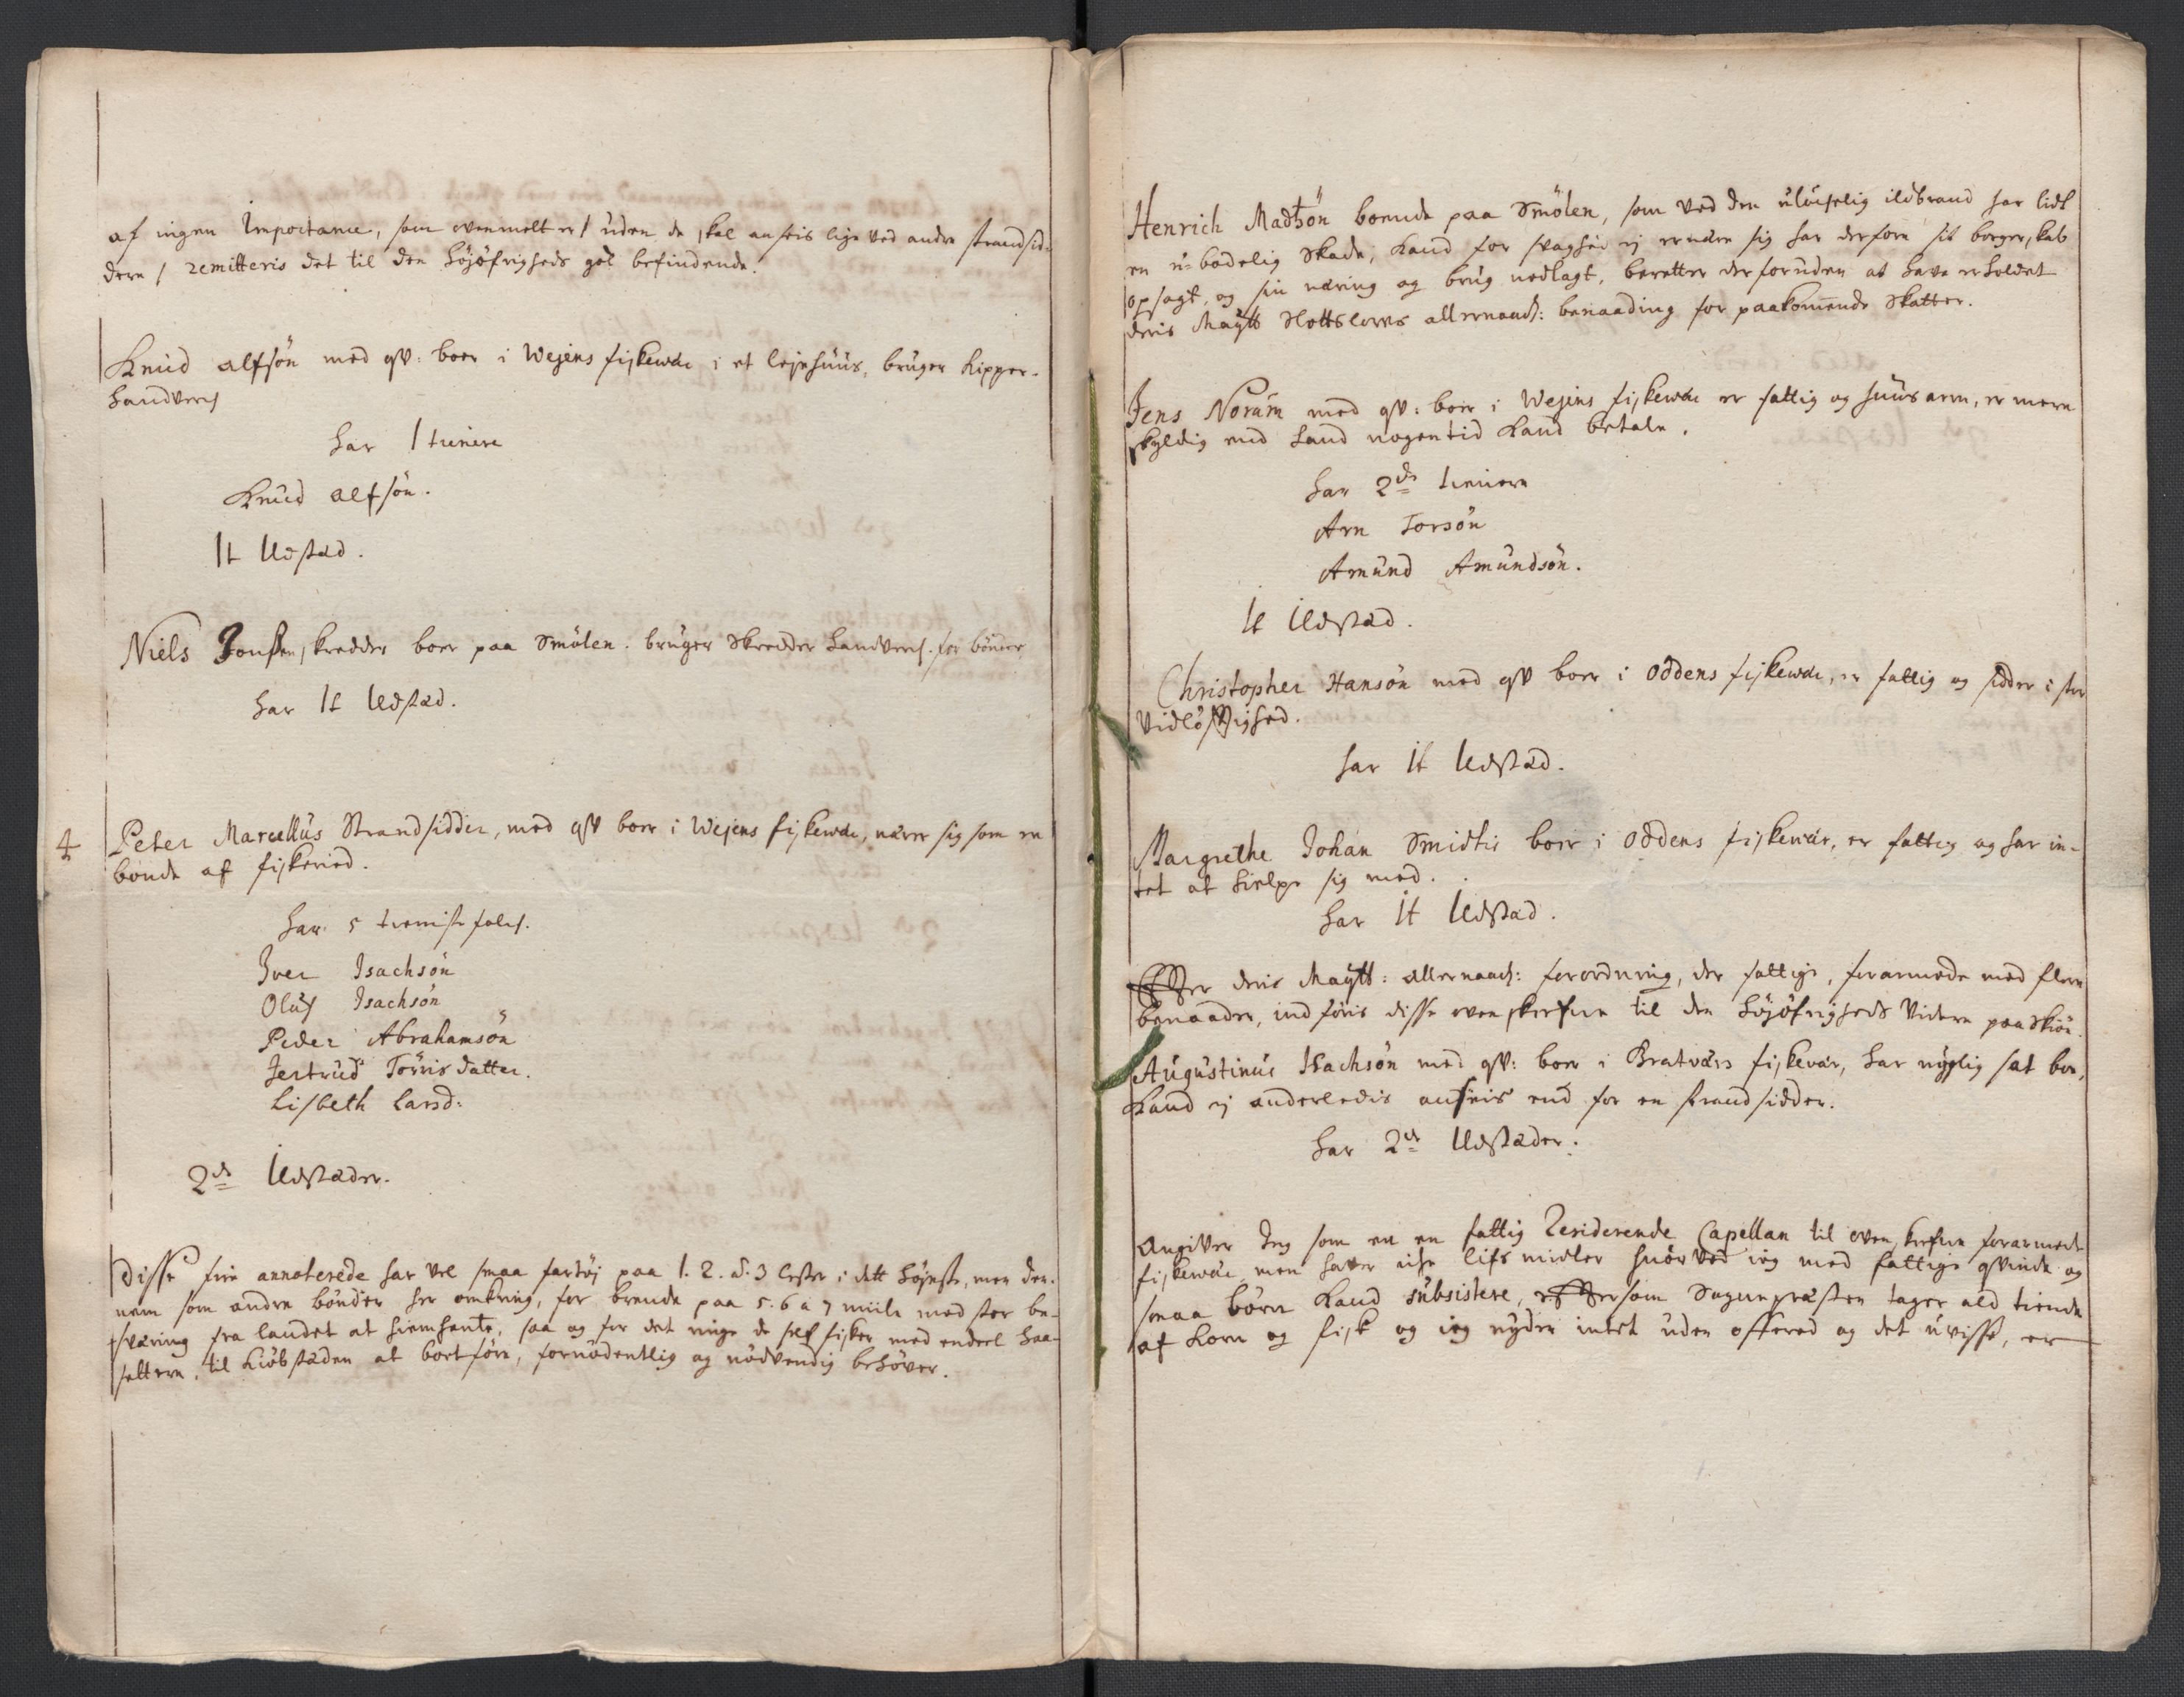 af ingen Importance, som ovenmelt er / uden de skal ansees lige ved andre strandsid-
dere / remitteris det til den høyøfrigheds got befindende.
Knud alfsøn med qv: boer i Wejens fiskewær i et lejehuus, bruger Kipper-
handverch
har 1 tienere
Knud alfsøn.
1t Ildstæd.
Niels Jonsen skredder boer paa Smølen. bruger Skredder handverch. for bønder
har 1t Ildstæd.
4
Peter Marcellus Strandsidder, med qv boer i Wejens fiskewær, nærer sig som en
bonde af fiskeried.
har 5 tieniste folch.
Iver Isachsøn
Oluf Isachsøn
Peder Abrahamsøn
Jertrud Tørrisdatter.
Lisbeth Larsd:
2de Ildstæder.
Disse fire annoterede har vel smaa fartøj paa 1. 2. a. 3 lester i dett højeste, men den-
nem som andre bønder her omkring, for brende paa 5. 6 a 7 miile med stor be-
sværing fra landet at hiemhente, saa og for det ringe de self fisker med endeel haa-
settere, til Kiøbstæden at bortføre, fornødentlig og nødvendig behøver.
Henrich Madsøn boende paa Smølen, som ved den ulyckelig ildbrand har lidt
en u-bodelig Skade, Kand for svaghed ej ernære sig har derfore sit borgerskab
opsagt, og sin næring og brug nedlagt, beretter derforuden at have erholdet
deris Maÿtts Slottslovens allernaad: benaading for paakommende Skatter.
Jens Noram med qv: boer i Wejens fiskewær er fattig og huusarm, er mere
skyldig end hand nogentid Kand betale.
har 2de tienere
Arn Torsøn
Amund Amundsøn.
1t Ildstæd.
Christopher Hansøn med qv boer i Oddens fiskewær, er fattig og sidder i stor
Vidløftighed.
har 1t Ildstæd.
Margrethe Johan Smidtis boer i Oddens fiskewær, er fattig og har in-
tet at hielpe sig med.
har 1t Ildstæd.
Efter deris Maÿtt: allernaad: forordning, der fattige, forarmede med flere
benaader, indføris disse ovenskrefne til den høyøfrigheds videre paaskiøn.
Augustinus Isachsøn med qv: boer i Bratværs fiskevær, har nylig sat boe,
Kand ej anderledis anseeis end for en strandsidder.
har 2de Ildstæder.
Angiver Jeg som er en fattig Residerende Capellan til ovenskrefne forarmede
fiskewær men haver icke lifs midler hvorved ieg med fattige qvinde og
smaa børn Kand subsistere, eftersom Sognepræsten tager ald tiende
af Korn og fisk og ieg nyder intet uden offered og det uvisse, er